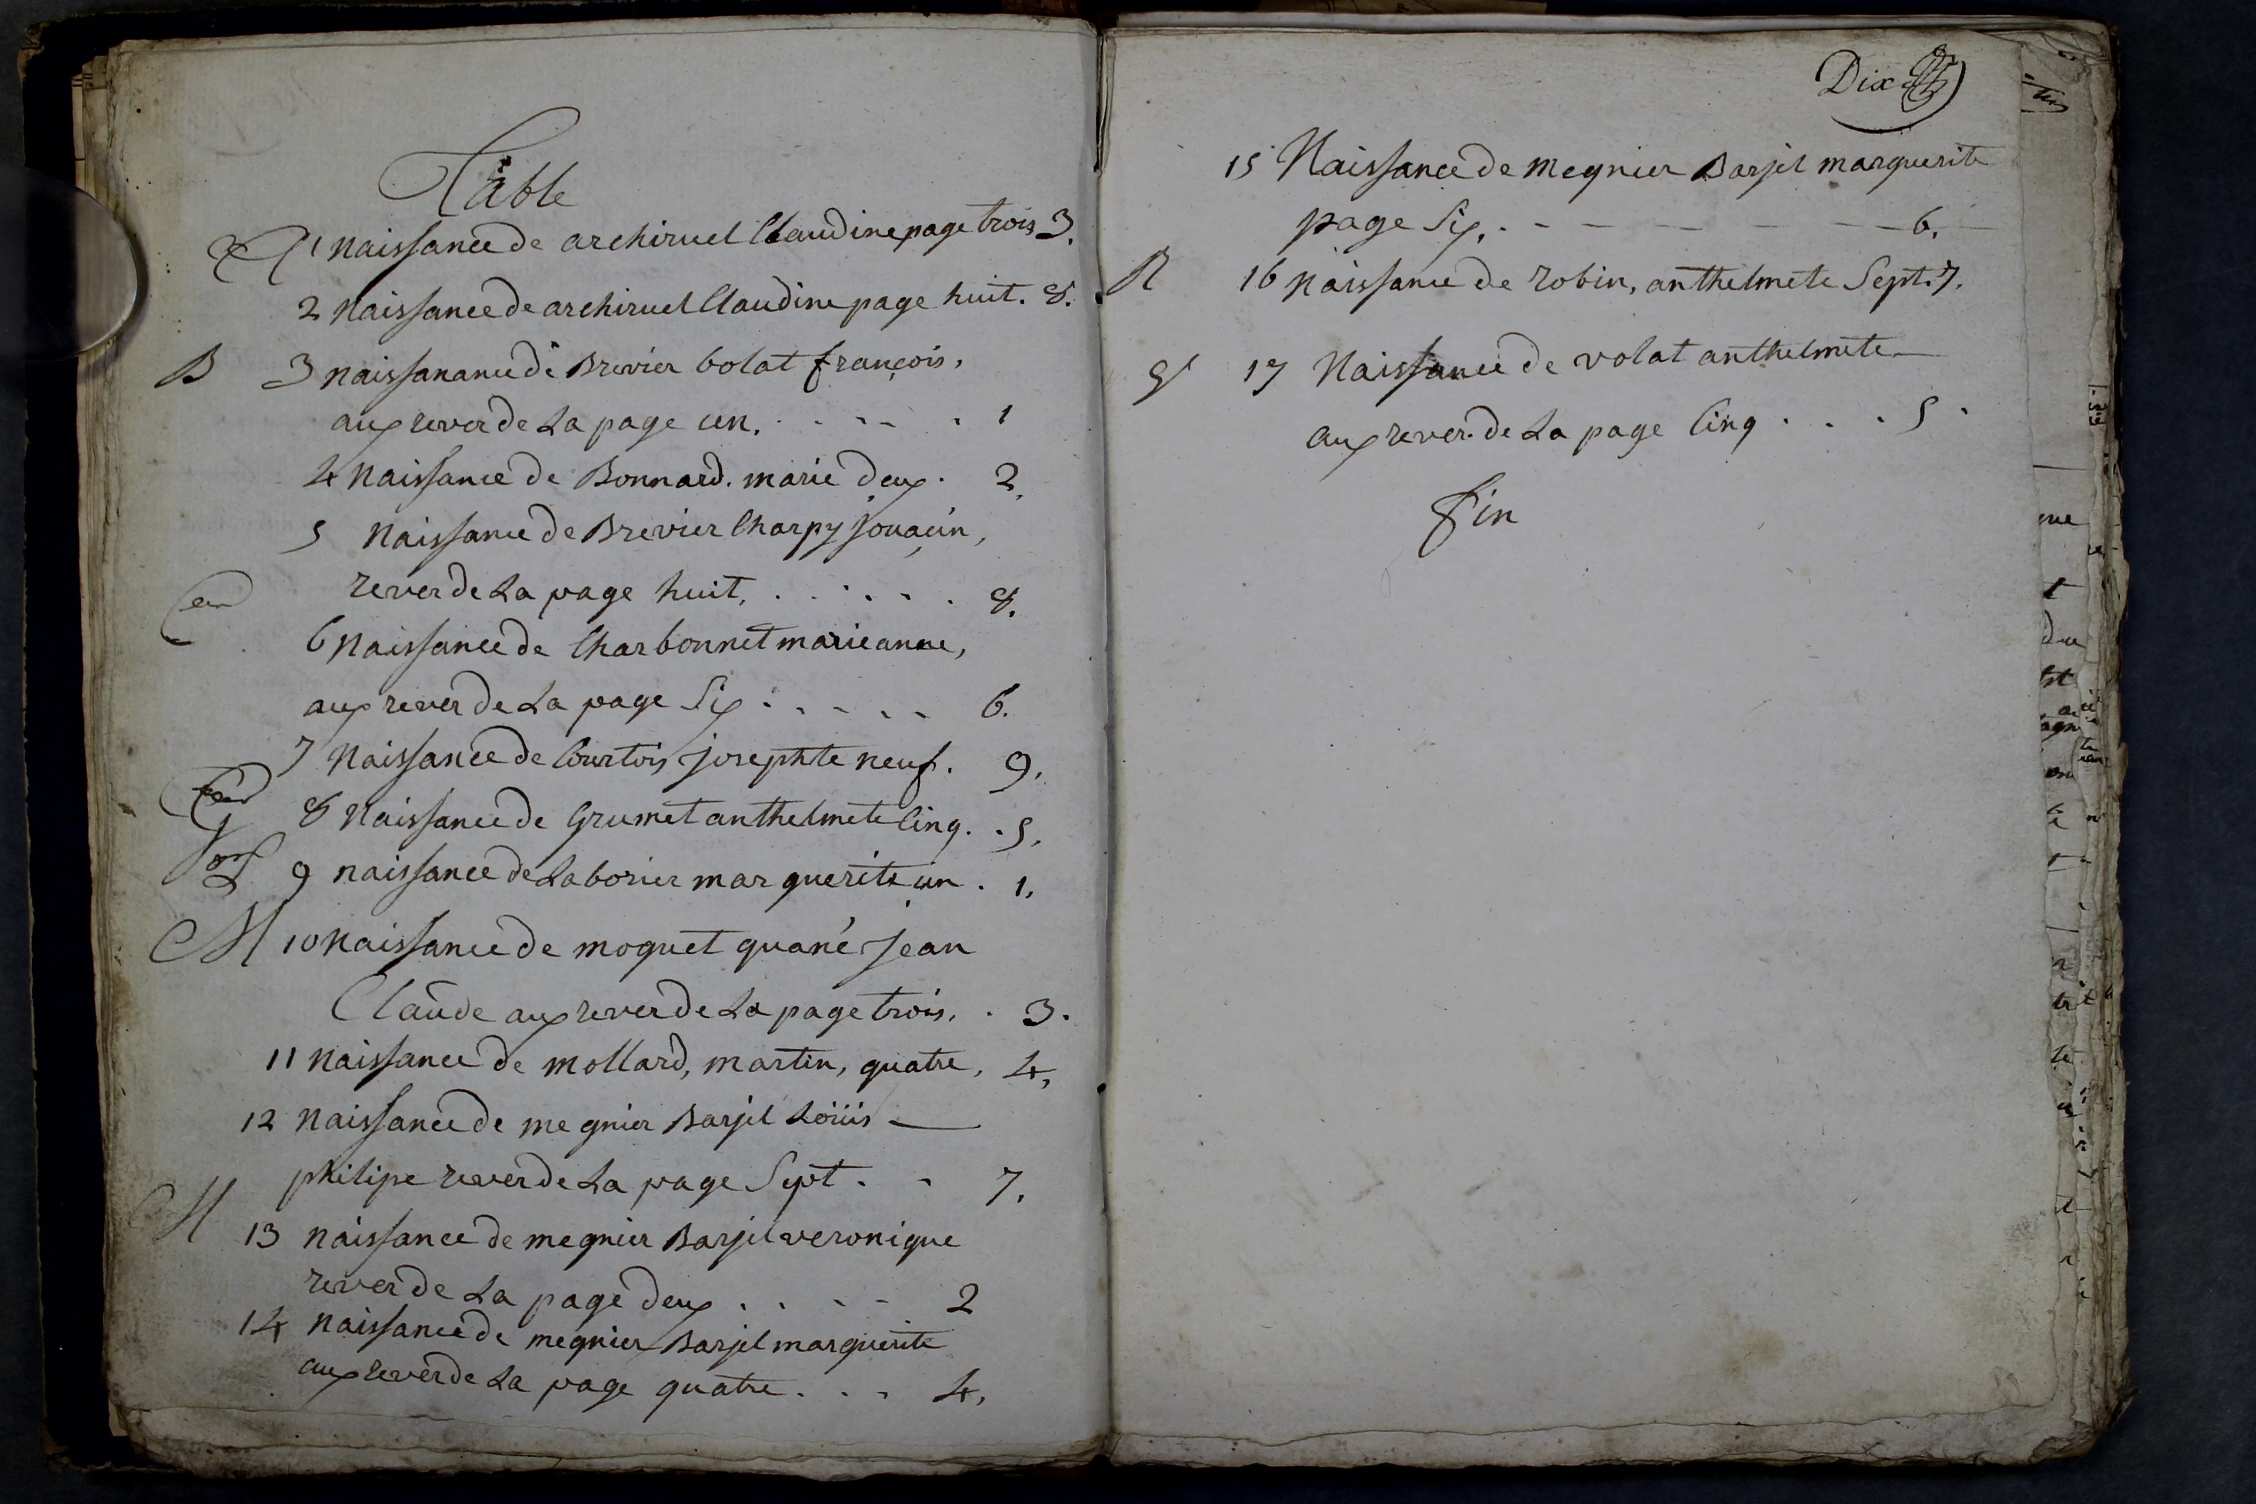 Table
1 naissance de archiruel Claudine page trois 3.
2 Naissance de archiruel Claudine page huit. 8.
B 3 naissanance de Brevier bolat françois,
aux rever de La page un. . . . . . 1
4 Naissance de Bonnard. marie deux. 2.
5 Naissance de Brevier Charpy Jouacin,
rever de La page huit, . . . . . . 8.
6 Naissance de Charbonnet marieanne,
aux rever de La page Six . . . . . 6.
7 Naissance de Courtois josephte neuf. 9.
8 Naissance de Grumet anthelmete Cinq. . 5.
9 naissance de Laborier marguerite un . 1.
M 10 Naissance de moquet quané Jean
Claude aux rever de La page trois, . 3.
11 Naissance de mollard, martin, quatre, 4,
12 Naissance de megnier Barjel Loüis —
philipe rever de La page Sept . . 7.
M 13 naissance de megnier Barjel veronique
rever de La page deux . . . . 2
14 Naissance de megnier Barjel marguerite
aux rever de La page quatre . . . 4,
Dix
15 Naissance de megnier Barjel marguerite
page Six. - - - - - - - 6.
R 16 Naissance de robin, anthelmete Sept. 7.
17 Naissance de volat anthelmete —
aux rever. de La page Cinq . . . 5.
Fin